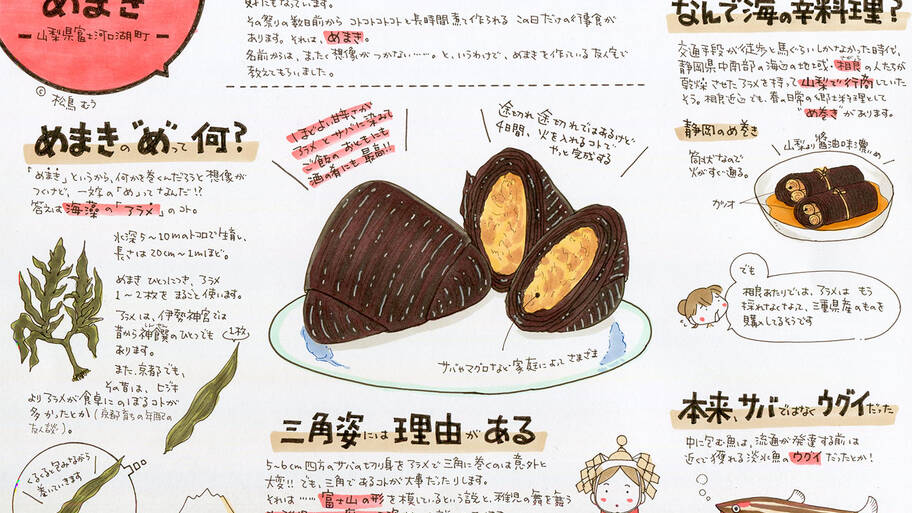 めまき
山梨県富士河口湖町
© 松鳥むう
好評になっています。
その祭りの数日前から コトコトコトコトと長時間煮て作られる この日だけの行事食が
あります。それは、めまき。
名前からは、またく想像がつかない……。と、いうわけで、めまきを作っている友人宅で
教えてもらいました。
めまきの“め”って何?
「めまき」というから、何かを巻くんだろうと想像が
つくけど、一文字の「め」ってなんだ!?
答えは海藻の「アラメ」のコト。
水深5～10mのトコロで生育し、
長さは20cm～1mほど。
めまき ひとつにつき、アラメ
1～2枚を まるごと使います。
アラメは、伊勢神宮では
昔から神饌のひとつでも
あります。
また、京都でも、
その昔は、ヒジキ
よりアラメが食卓にのぼるコトが
多かったとか(京都育ちの年配の
友人談)。
1枚
くるくると包みながら
巻いていきます
ほどよい甘辛さが
アラメとサバに染みて
ご飯のおともにも
酒の肴にも最高!!
途切れ途切れではあるけど
4日間、火を入れるコトで
やっと完成する
サバやマグロなど家庭によってさまざま
三角姿には理由がある
5～6cm四方のサバの切り身をアラメで三角に巻くのは意外と
大変!! でも、三角であるコトが大事だったりします。
それは……富士山の形を模しているという説と、稚児の舞を舞う
なんで海の幸料理?
交通手段が徒歩と馬ぐらいしかなかった時代、
静岡県中南部の海辺の地域・相良の人たちが
乾燥させたアラメを持って山梨まで行商していた
そう。相良近辺でも、春の日常の郷土料理として
“め巻き”があります。
静岡のめ巻き
筒状なので
火がすぐ通る。
山梨より醤油味濃いめ
カツオ
でも
相良あたりでは、アラメは もう
採れなくなよ、三重県産のものを
購入してるそうです
本来、サバではなくウグイだった
中に包む魚は、流通が発達する前は
近くで獲れる淡水魚のウグイだったとか!